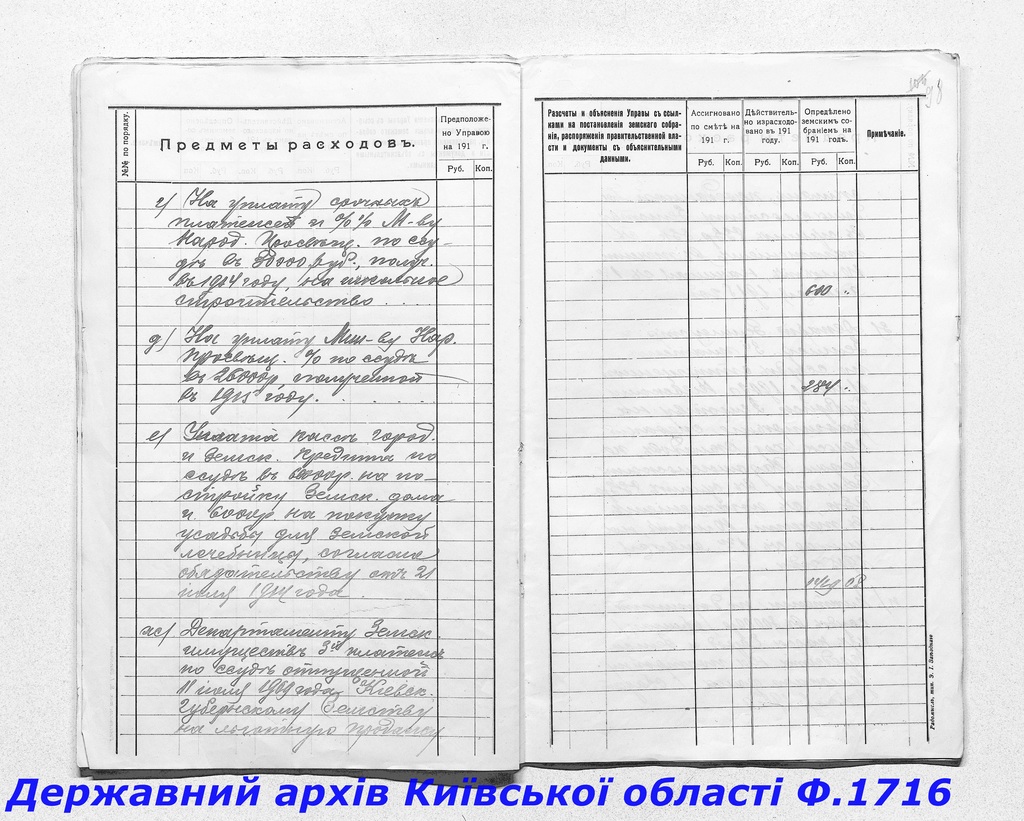 №№ по порядку.
Предметы расходовъ.
Предположе-
но Управою
на 191 г.
Руб. Коп.
г) (На уплату) срочныхъ
платежей и % % М-ву
Народ. Просвѣщ. по ссу-
дѣ въ 30000 руб., получ.
въ 1914 году, на школьное
строительство . . . .
д) На уплату Мин-ву Нар.
Просвѣщ. % по ссудѣ
въ 26000р, полученной
въ 1915 году. . . . . .
е) Уплата кассѣ город.
и земск. кредита по
ссудѣ въ 60000р. на по-
стройку Земск. дома
и 6000р. на покупку
усадьбы для земской
лечебницы, согласно
обязательству отъ 21
июля 1914 года .
ж) Департаменту Земск.
имуществъ 3й платежъ
по ссудѣ отпущенной
11 июля 1909 года Кіевск.
Губернскому Земству
на льготную продажу
Разсчеты и объясненія Управы съ ссыл-
ками на постановленія земскаго собра-
нія, распоряженія правительственной вла-
сти и документы съ объяснительными
данными.
Ассигновано
по смѣтѣ на
191 г.
Руб. Коп.
Дѣйствитель-
но израсходо-
вано въ 191
году.
Руб. Коп.
Опредѣлено
земскимъ со-
браніемъ на
191 годъ.
Руб. Коп.
Примѣчаніе.
600 "
284 "
08
Радомысль, тип.
Державний архів Київської області Ф.1716